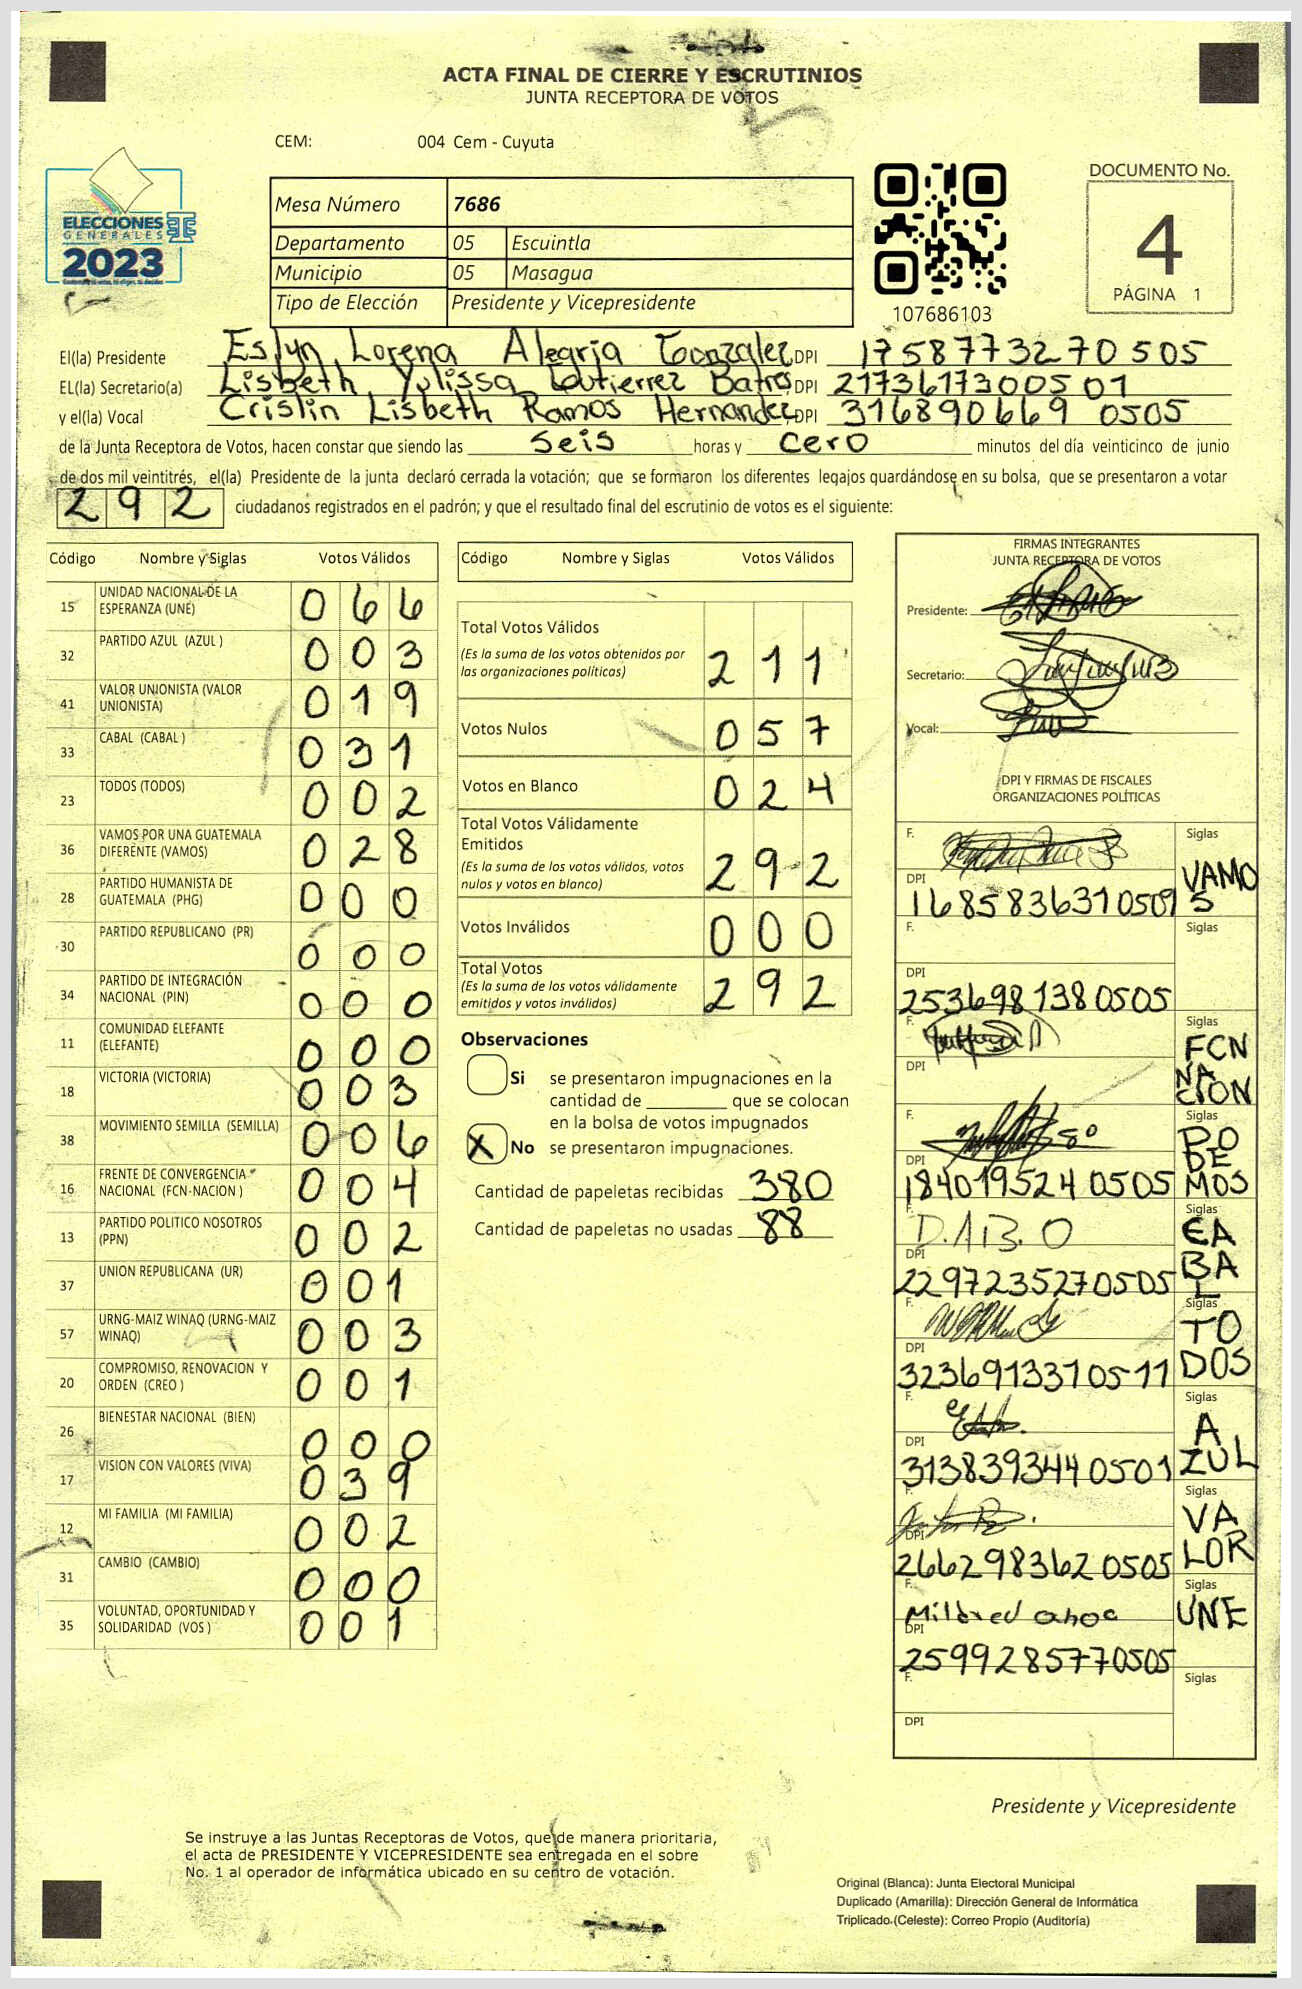 ACTA FINAL DE CIERRE Y ESCRUTINIOS
JUNTA RECEPTORA DE VOTOS
CEM: 004 Cem - Cuyuta
ELECCIONES
GENERALES
2023
Mesa Número 7686
Departamento 05 Escuintla
Municipio 05 Masagua
Tipo de Elección Presidente y Vicepresidente
107686103
DOCUMENTO No.
4
PÁGINA 1
El(la) Presidente Eslyn Lorena Alegria Gonzalez, DPI 1758773270505
EL(la) Secretario(a) Lisbeth Yulissa Gutierrez Batres, DPI 2173617300501
y el(la) Vocal Cristin Lisbeth Ramos Hernandez, DPI 316890669 0505
de la Junta Receptora de Votos, hacen constar que siendo las seis horas y cero minutos del día veinticinco de junio
de dos mil veintitrés, el(la) Presidente de la junta declaró cerrada la votación; que se formaron los diferentes legajos guardándose en su bolsa, que se presentaron a votar
292 ciudadanos registrados en el padrón; y que el resultado final del escrutinio de votos es el siguiente:
Código Nombre y Siglas Votos Válidos
15 UNIDAD NACIONAL DE LA ESPERANZA (UNE) 066
32 PARTIDO AZUL (AZUL ) 003
41 VALOR UNIONISTA (VALOR UNIONISTA) 019
33 CABAL (CABAL ) 031
23 TODOS (TODOS) 002
36 VAMOS POR UNA GUATEMALA DIFERENTE (VAMOS) 028
28 PARTIDO HUMANISTA DE GUATEMALA (PHG) 000
30 PARTIDO REPUBLICANO (PR) 000
34 PARTIDO DE INTEGRACIÓN NACIONAL (PIN) 000
11 COMUNIDAD ELEFANTE (ELEFANTE) 000
18 VICTORIA (VICTORIA) 003
38 MOVIMIENTO SEMILLA (SEMILLA) 006
16 FRENTE DE CONVERGENCIA NACIONAL (FCN-NACION ) 004
13 PARTIDO POLITICO NOSOTROS (PPN) 002
37 UNION REPUBLICANA (UR) 001
57 URNG-MAIZ WINAQ (URNG-MAIZ WINAQ) 003
20 COMPROMISO, RENOVACION Y ORDEN (CREO ) 001
26 BIENESTAR NACIONAL (BIEN) 000
17 VISION CON VALORES (VIVA) 039
12 MI FAMILIA (MI FAMILIA) 002
31 CAMBIO (CAMBIO) 000
35 VOLUNTAD, OPORTUNIDAD Y SOLIDARIDAD (VOS ) 001
Código Nombre y Siglas Votos Válidos
Total Votos Válidos 211
(Es la suma de los votos obtenidos por
las organizaciones políticas)
Votos Nulos 057
Votos en Blanco 024
Total Votos Válidamente
Emitidos 292
(Es la suma de los votos válidos, votos
nulos y votos en blanco)
Votos Inválidos 000
Total Votos 292
(Es la suma de los votos válidamente
emitidos y votos inválidos)
Observaciones
Si se presentaron impugnaciones en la
cantidad de ________ que se colocan
en la bolsa de votos impugnados
X No se presentaron impugnaciones.
Cantidad de papeletas recibidas 380
Cantidad de papeletas no usadas 88
FIRMAS INTEGRANTES
JUNTA RECEPTORA DE VOTOS
Presidente:
Secretario:
Vocal:
DPI Y FIRMAS DE FISCALES
ORGANIZACIONES POLÍTICAS
F. Siglas VAMOS
DPI 1685836310509
F. Siglas
DPI 2536981380505
F. Siglas FCN NACION
DPI
F. Siglas PODEMOS
DPI 1840195240505
F. D.A B. O Siglas CABAL
DPI 2297235270505
F. Siglas TODOS
DPI 3236913310511
F. Siglas AZUL
DPI 3138393440501
F. Siglas VALOR
DPI 2662983620505
F. Mildred Siglas UNE
DPI 2599285770505
F. Siglas
DPI
Presidente y Vicepresidente
Se instruye a las Juntas Receptoras de Votos, que de manera prioritaria,
el acta de PRESIDENTE Y VICEPRESIDENTE sea entregada en el sobre
No. 1 al operador de informática ubicado en su centro de votación.
Original (Blanca): Junta Electoral Municipal
Duplicado (Amarilla): Dirección General de Informática
Triplicado (Celeste): Correo Propio (Auditoría)